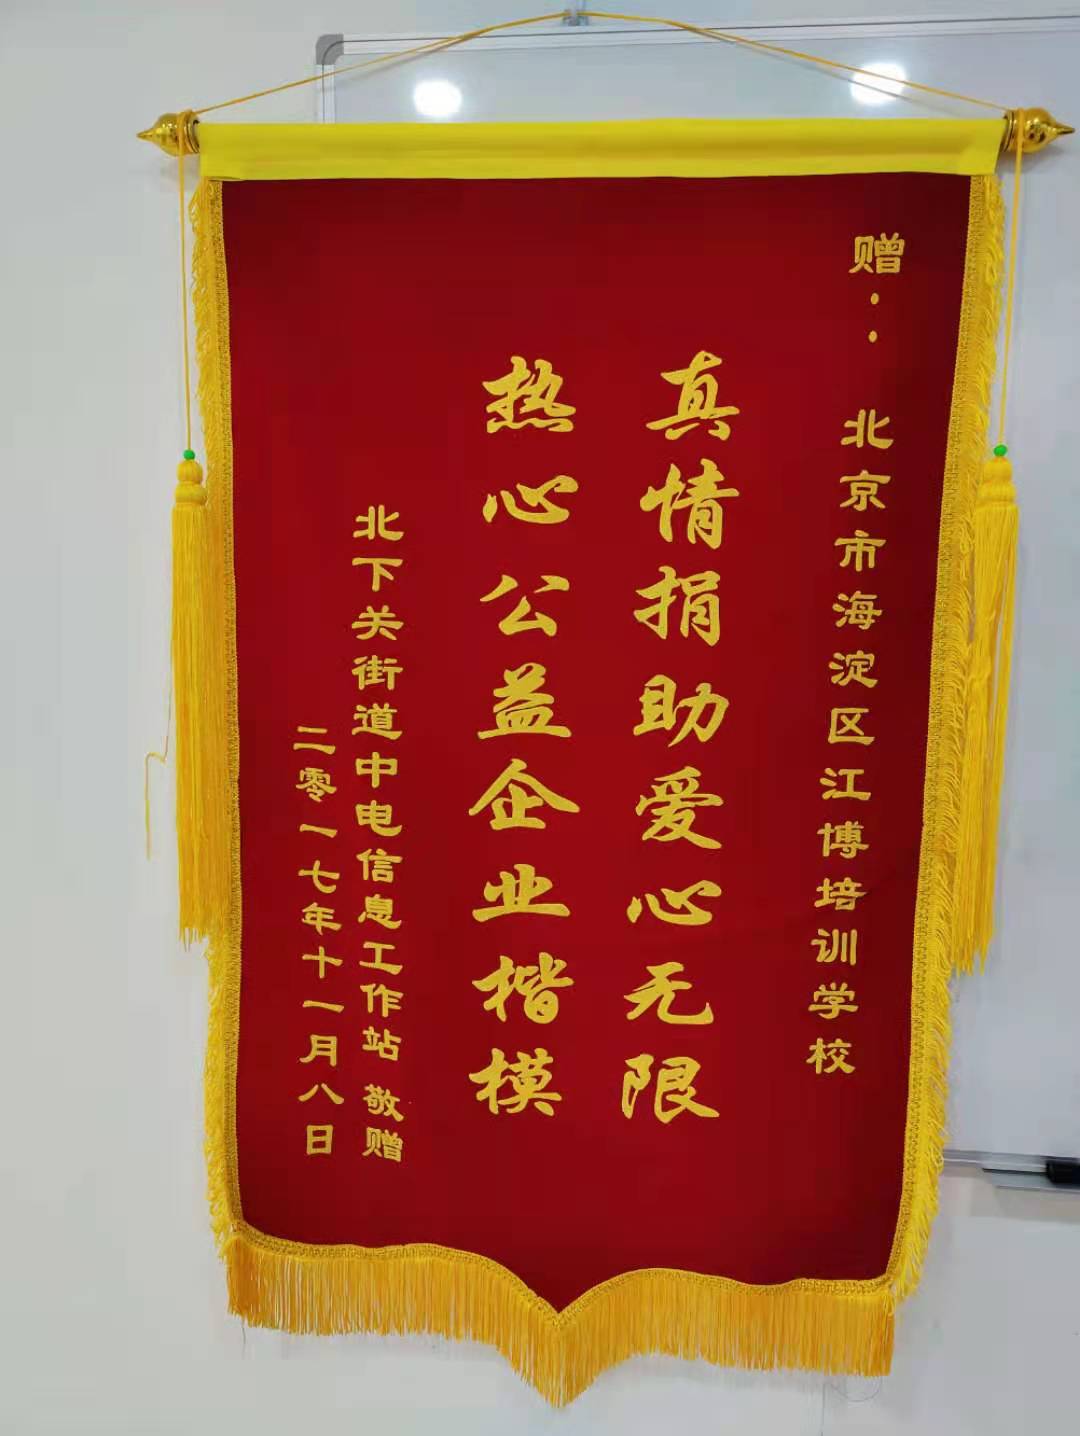 赠：北京市海淀区江博培训学校
真情捐助爱心无限
热心公益企业楷模
北下关街道中电信息工作站 敬赠
二零一七年十一月八日